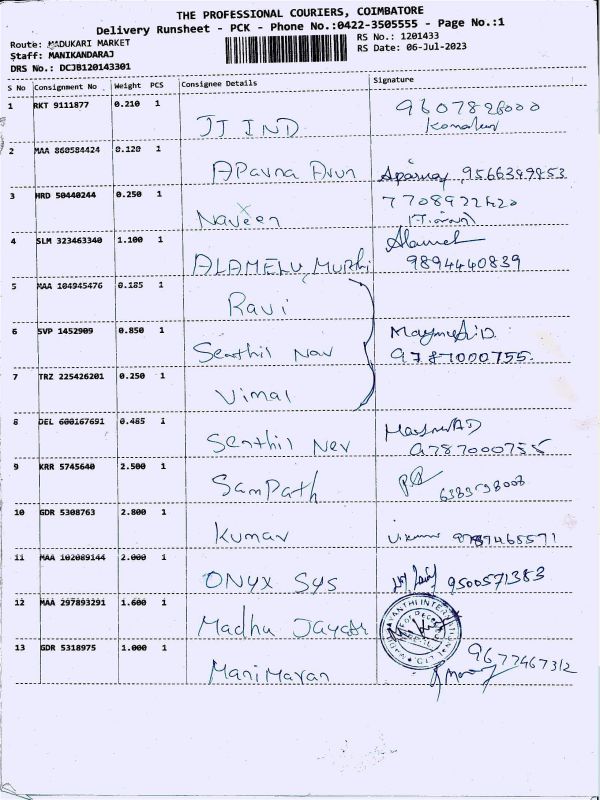 THE PROFESSIONAL COURIERS, COIMBATORE
Delivery Runsheet - PCK - Phone No.:0422-3505555 - Page No.:1
Route: MADUKARI MARKET
RS No.: 1201433
Staff: MANIKANDARAJ
RS Date: 06-Jul-2023
DRS No.: DCJB120143301
S No Consignment No Weight PCS Consignee Details Signature
1 RKT 9111877 0.210 1
JJ IND
2 MAA 860584424 0.120 1
APavna Arun
3 HRD 50440244 0.250 1 7708922420
Naveen
4 SLM 323463340 1.100 1
ALAMELU, Murthi 9894440839
5 MAA 104945476 0.185 1
Ravi
6 SVP 1452909 0.850 1
Senthil Nav 9787000755
7 TRZ 225426201 0.250 1
Vimal
8 DEL 600167691 0.485 1
Senthil Nev 9787000755
9 KRR 5745640 2.500 1
SamPath
10 GDR 5308763 2.800 1
Kumar
11 MAA 102089144 2.000 1
ONYX SYS 9500571383
12 MAA 297893291 1.600 1
Madhu
13 GDR 5318975 1.000 1 9677467312
ManiMaran